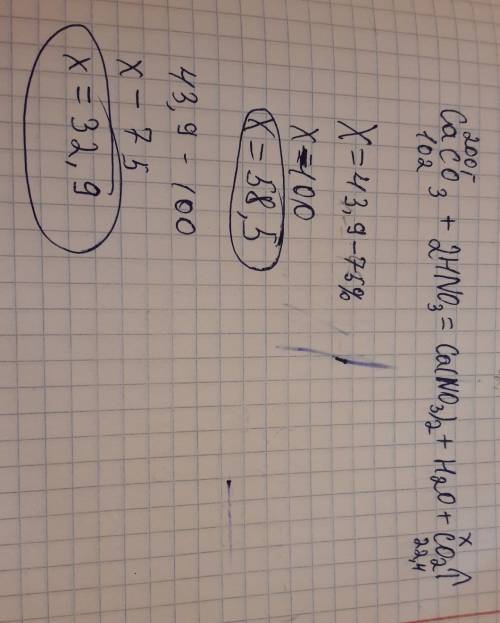 200г x
CaCO3 + 2HNO3 = Ca(NO3)2 + H2O + CO2↑
102 22,4
X = 43,9 - 75%
X = 100
X = 58,5
43,9 - 100
X - 75
X = 32,9